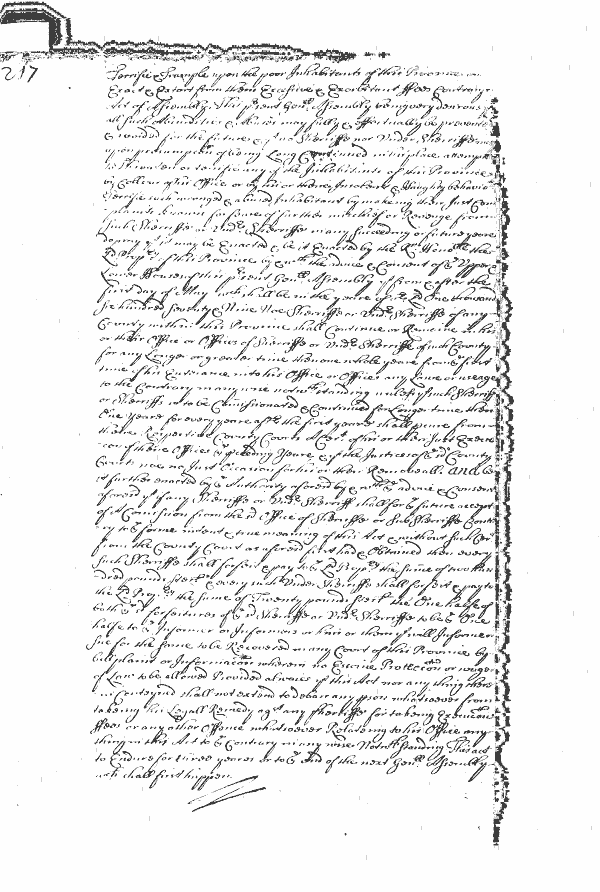 217
Terrific Example upon the poor Inhabitants of this Province
Exact & Extort from them Excessive & Exorbitant ffees Contrary
Act of Assembly. This present Gen.ll Assembly being very desirous
all such may fully & effectually be prevented
& avoided for the future & yt no Sheriffe nor Under Sheriffe
upon presumpcon of being Long Continued in his place
to threaten or terrifie any of the Inhabitants of this Province
by Collour of his Office or by his or their Insolent & haughty behavior
terrifie such wronged abused Inhabitant by makeing their Just Com
plaints known for feare of further mischief or Revenge from
such Sheriffe or Under Sheriffe in any Suceeding or future yeare
pray yt it may be Enacted & be it Enacted by the Rt Honble the
Ld Propry of this Province by & with the advice & Consent of ye Upper &
Lower Houses of this present Genll Assembly yt from & after the
first day of May wch shall be in the yeare of or Ld One thousand
six hundred Seventy & Nine Noe Sherriffe or Under Sheriffe of any
County within this Province shall Continue or Remaine in his
or their Office or Offices of Sherriffe or Under Sherriffe of such County
for any Longer or greater time then one whole yeare from ye first
time of his Entrance into his Office or Offices any Law or usage
to the Contrary in any wise notwthstanding unless such Sherriff
or Sherriffs to be Comissionated & Continued for Longer time then
One Yeare for every yeare after the first yeare shall
their Respective County Courts a Cert. of his or their Just Execu
con of their Offices ye preceding Yeare & yt the Justices of ye sd County
Courts see no Just Occasion for his or their Removeall. And be
it further enacted by ye Authority aforesd by & with ye advice & Consent
aforesd yt if any Sherriffe or Under Sherriff shall for ye future accept
of a Comission from the sd Office of Sherriffe or Sub Sherriffe Contra
ry to ye forme intent & true meaning of this Act without such Cert
from the County Court as aforesd first had & Obtained then every
such Sherriffe shall forfeit & pay to ye Ld Propry the sume of two hun
dred pounds sterl & every such Under Sherriffe shall forfeit & pay to
the Ld Propry the sume of Twenty pounds sterl the One halfe of
both ye sd forfeitures of ye sd Sherriffe or Under Sherriffe to be to ye
halfe to ye Informer or Informers or him or them yt will Informe or
sue for the same to be Recovered in any Court of this Province by
bill plaint or Informacon wherein no Essoine Proteccon or wager
of Law to be allowed Provided alwaies yt this Act nor any thing there
in Conteyned shall not extend to debar any pson whatsoever from
takeing his Legall Remedy agt any Sherriffe for takeing Excessive
ffees or any other Offence whatsoever Relateing to his Office any
thing in this Act to ye Contrary in any wise Notwthstanding This act
to Endure for three yeares or to ye End of the next Genll Assembly
wch shall first happen